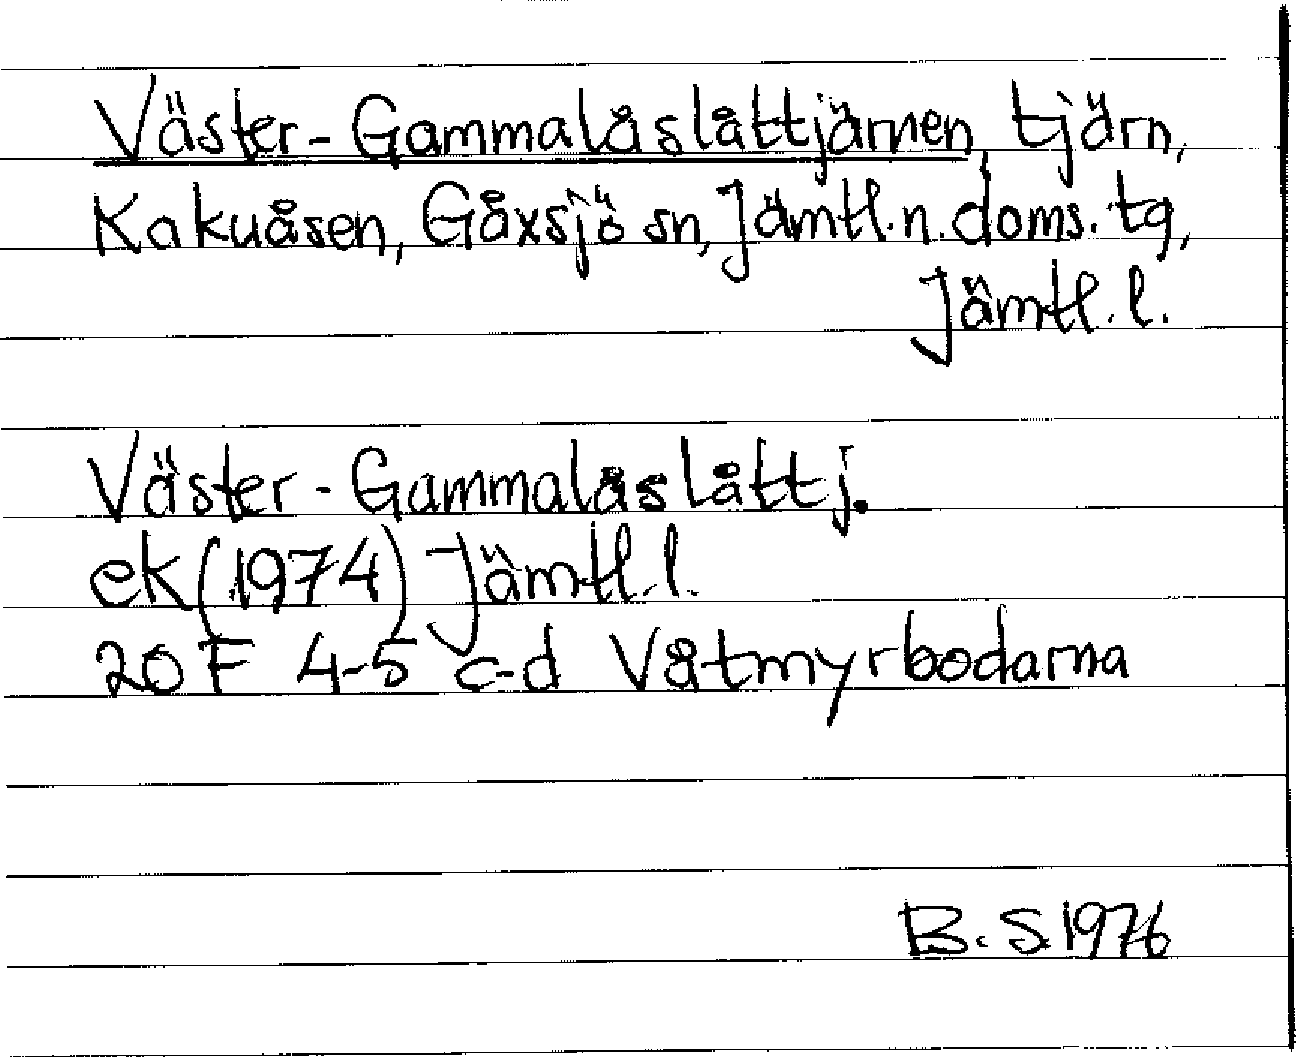 Väster-Gammalåslåttjärnen, tjärn,
Kakuåsen, Gåxsjö sn, Jämtl.n.doms.tg,
Jämtl.l.
Väster-Gammalåslåttj.
ek(1974) Jämtl.l.
20 F 4-5 c-d Våtmyrbodarna
B.S.1976